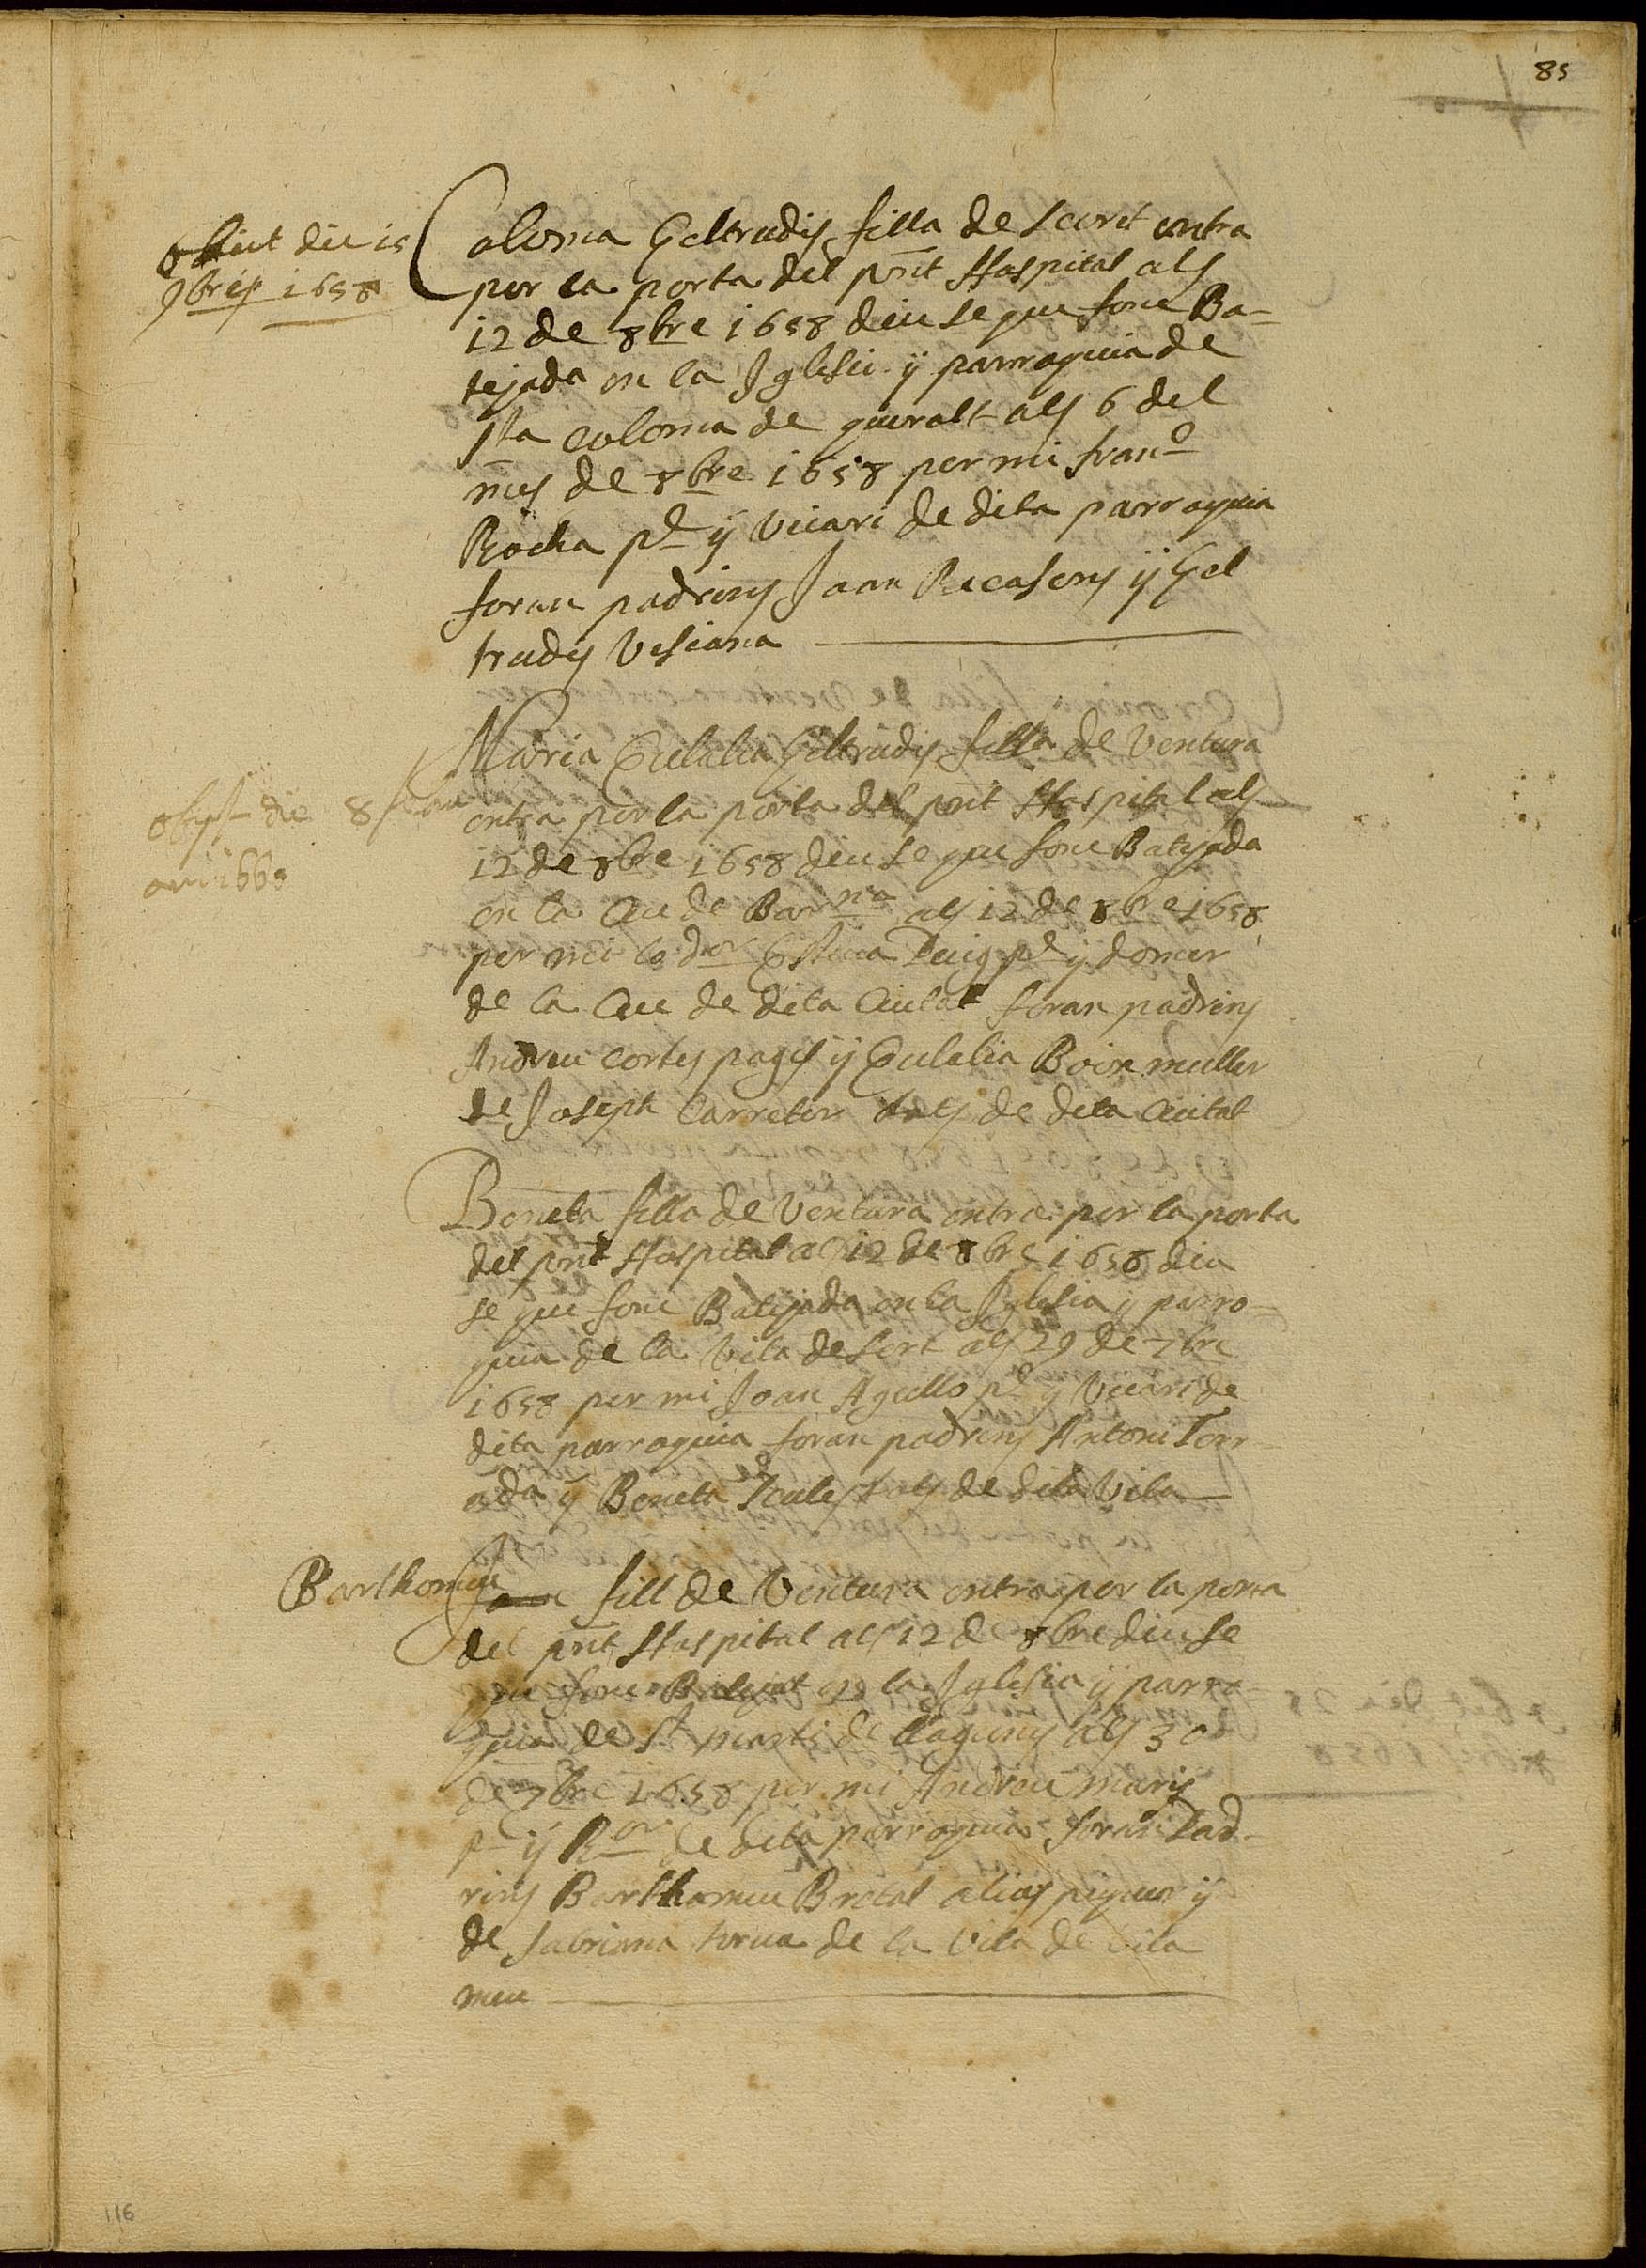 85
obiit die 15
9bris 1658
Coloma Geltrudis filla de secret entra
per la porta del pnt Hospital als
12 de 8bre 1658 diu se que fonc Ba-
tejada en la Iglesia ÿ parroquia de
sta coloma de queralt als 6 del
mes de 8bre 1658 per mi franco
Rocha pe ÿ vicari de dita parroquia
foran padrins Joan Recasens ÿ Gel
trudis Vesiana
obijt die 8
1660
Maria Eulalia Geltrudis filla de Ventura
entra per la porta del pnt Hospital als
12 de 8bre 1658 diu se que fonc Batejada
en la Seu de Barna als 12 de 8bre 1658
per mi lo dor Puig pe ÿ domer
de la Seu de dita Ciutat foran padrins
Andreu cortes pages ÿ Eulalia Boix muller
de Joseph Carreter tots de dita Ciutat
Beneta filla de Ventura entra per la porta
del pnt Hospital als 12 de 8bre 1658 diu
se que fonc Batejada en la Iglesia ÿ parro-
quia de la vila de Sort als 29 de 7bre
1658 per mi Joan Agullo pe ÿ Vicari de
dita parroquia foran padrins Antoni Torr
ada ÿ Beneta tots de dita Vila
Barthomeu fill de Ventura entra per la porta
del pnt Hospital als 12 de 8bre diu se
que fonc Batejat en la Iglesia ÿ parro-
quia de St marti de als 30
de 7bre 1658 per mi Andreu maris
pe ÿ Ror de dita parroquia foran Pad-
rins Barthomeu Brotal alias piquer ÿ
de torua de la Vila de vila
meu
116